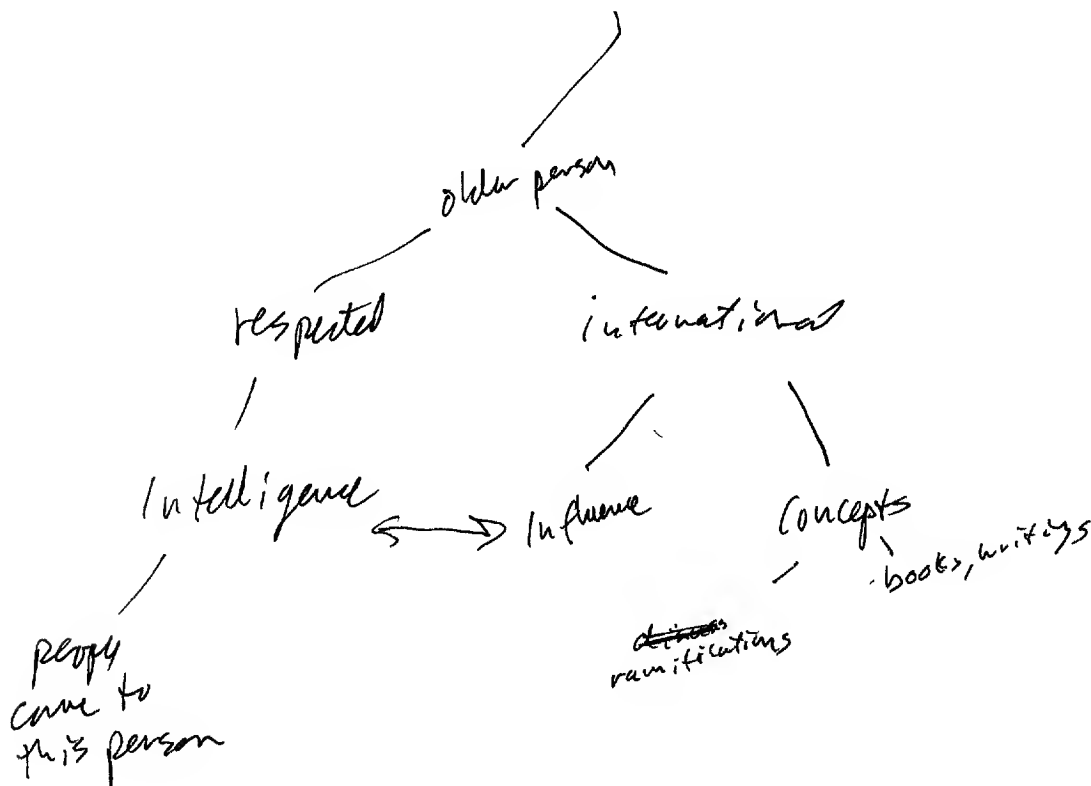 older person
respected
international
Intelligence
Influence
Concepts
books, writings
ramifications
people
come to
this person